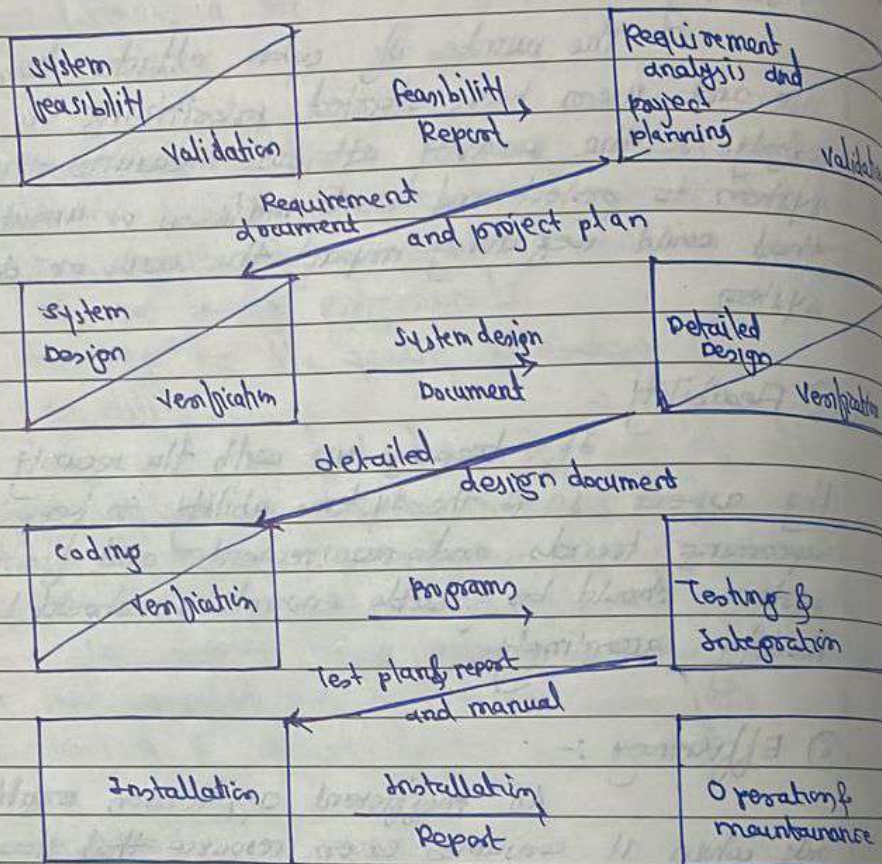 System
feasibility
Validation
feasibility
Report
Requirement
analysis and
project
planning
Validatio
Requirement
document
and project plan
System
Design
Verification
System design
Document
Detailed
Design
Verification
detailed
design document
Coding
Verification
Programs
Testing &
Integration
Test plan & report
and manual
Installation
Installation
Report
Operation &
maintainance